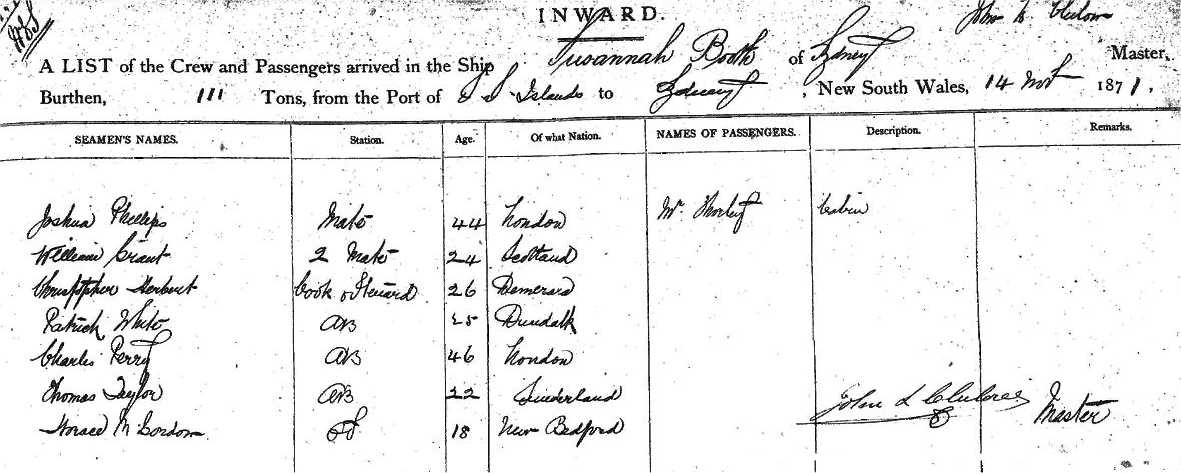 INWARD.
A LIST of the Crew and Passengers arrived in the Ship Susannah Booth of Sydney John Master,
Burthen, 111 Tons, from the Port of S S Islands to Sydney, New South Wales, 14 Nov 1871.
SEAMEN'S NAMES. Station. Age. Of what Nation. NAMES OF PASSENGERS. Description. Remarks.
Joshua Phillips Mate 44 London Mr. Cabin
William Grant 2 Mate 24 Scotland
Christopher Herbert Cook & Steward 26 Demerara
Patrick White AB 25 Dundalk
Charles Perry AB 46 London
Thomas Taylor AB 22 Sunderland John L Master
Horace M Gordon OS 18 New Bedford